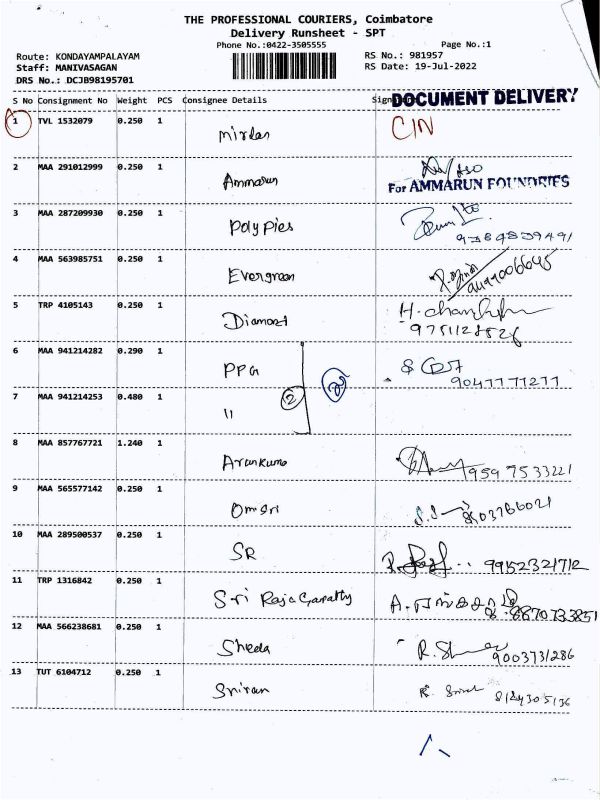 THE PROFESSIONAL COURIERS, Coimbatore
Delivery Runsheet - SPT
Phone No.:0422-3505555 Page No.:1
Route: KONDAYAMPALAYAM RS No.: 981957
Staff: MANIVASAGAN RS Date: 19-Jul-2022
DRS No.: DCJB98195701
S No Consignment No Weight PCS Consignee Details DOCUMENT DELIVERY
1 TVL 1532079 0.250 1 CIN
2 MAA 291012999 0.250 1 Ammarun
For AMMARUN FOUNDRIES
3 MAA 287209930 0.250 1 Polypies
4 MAA 563985751 0.250 1 Evergreen
5 TRP 4105143 0.250 1 Diamond
6 MAA 941214282 0.290 1 PPG
9047777277
7 MAA 941214253 0.480 1 11 2
8 MAA 857767721 1.240 1 9597533221
9 MAA 565577142 0.250 1 Omsri
10 MAA 289500537 0.250 1 SR 9952321712
11 TRP 1316842 0.250 1 Sri Raja Ganapathy A. 8870733851
12 MAA 566238681 0.250 1 Sheela R. 9003731286
13 TUT 6104712 0.250 1 Sriram